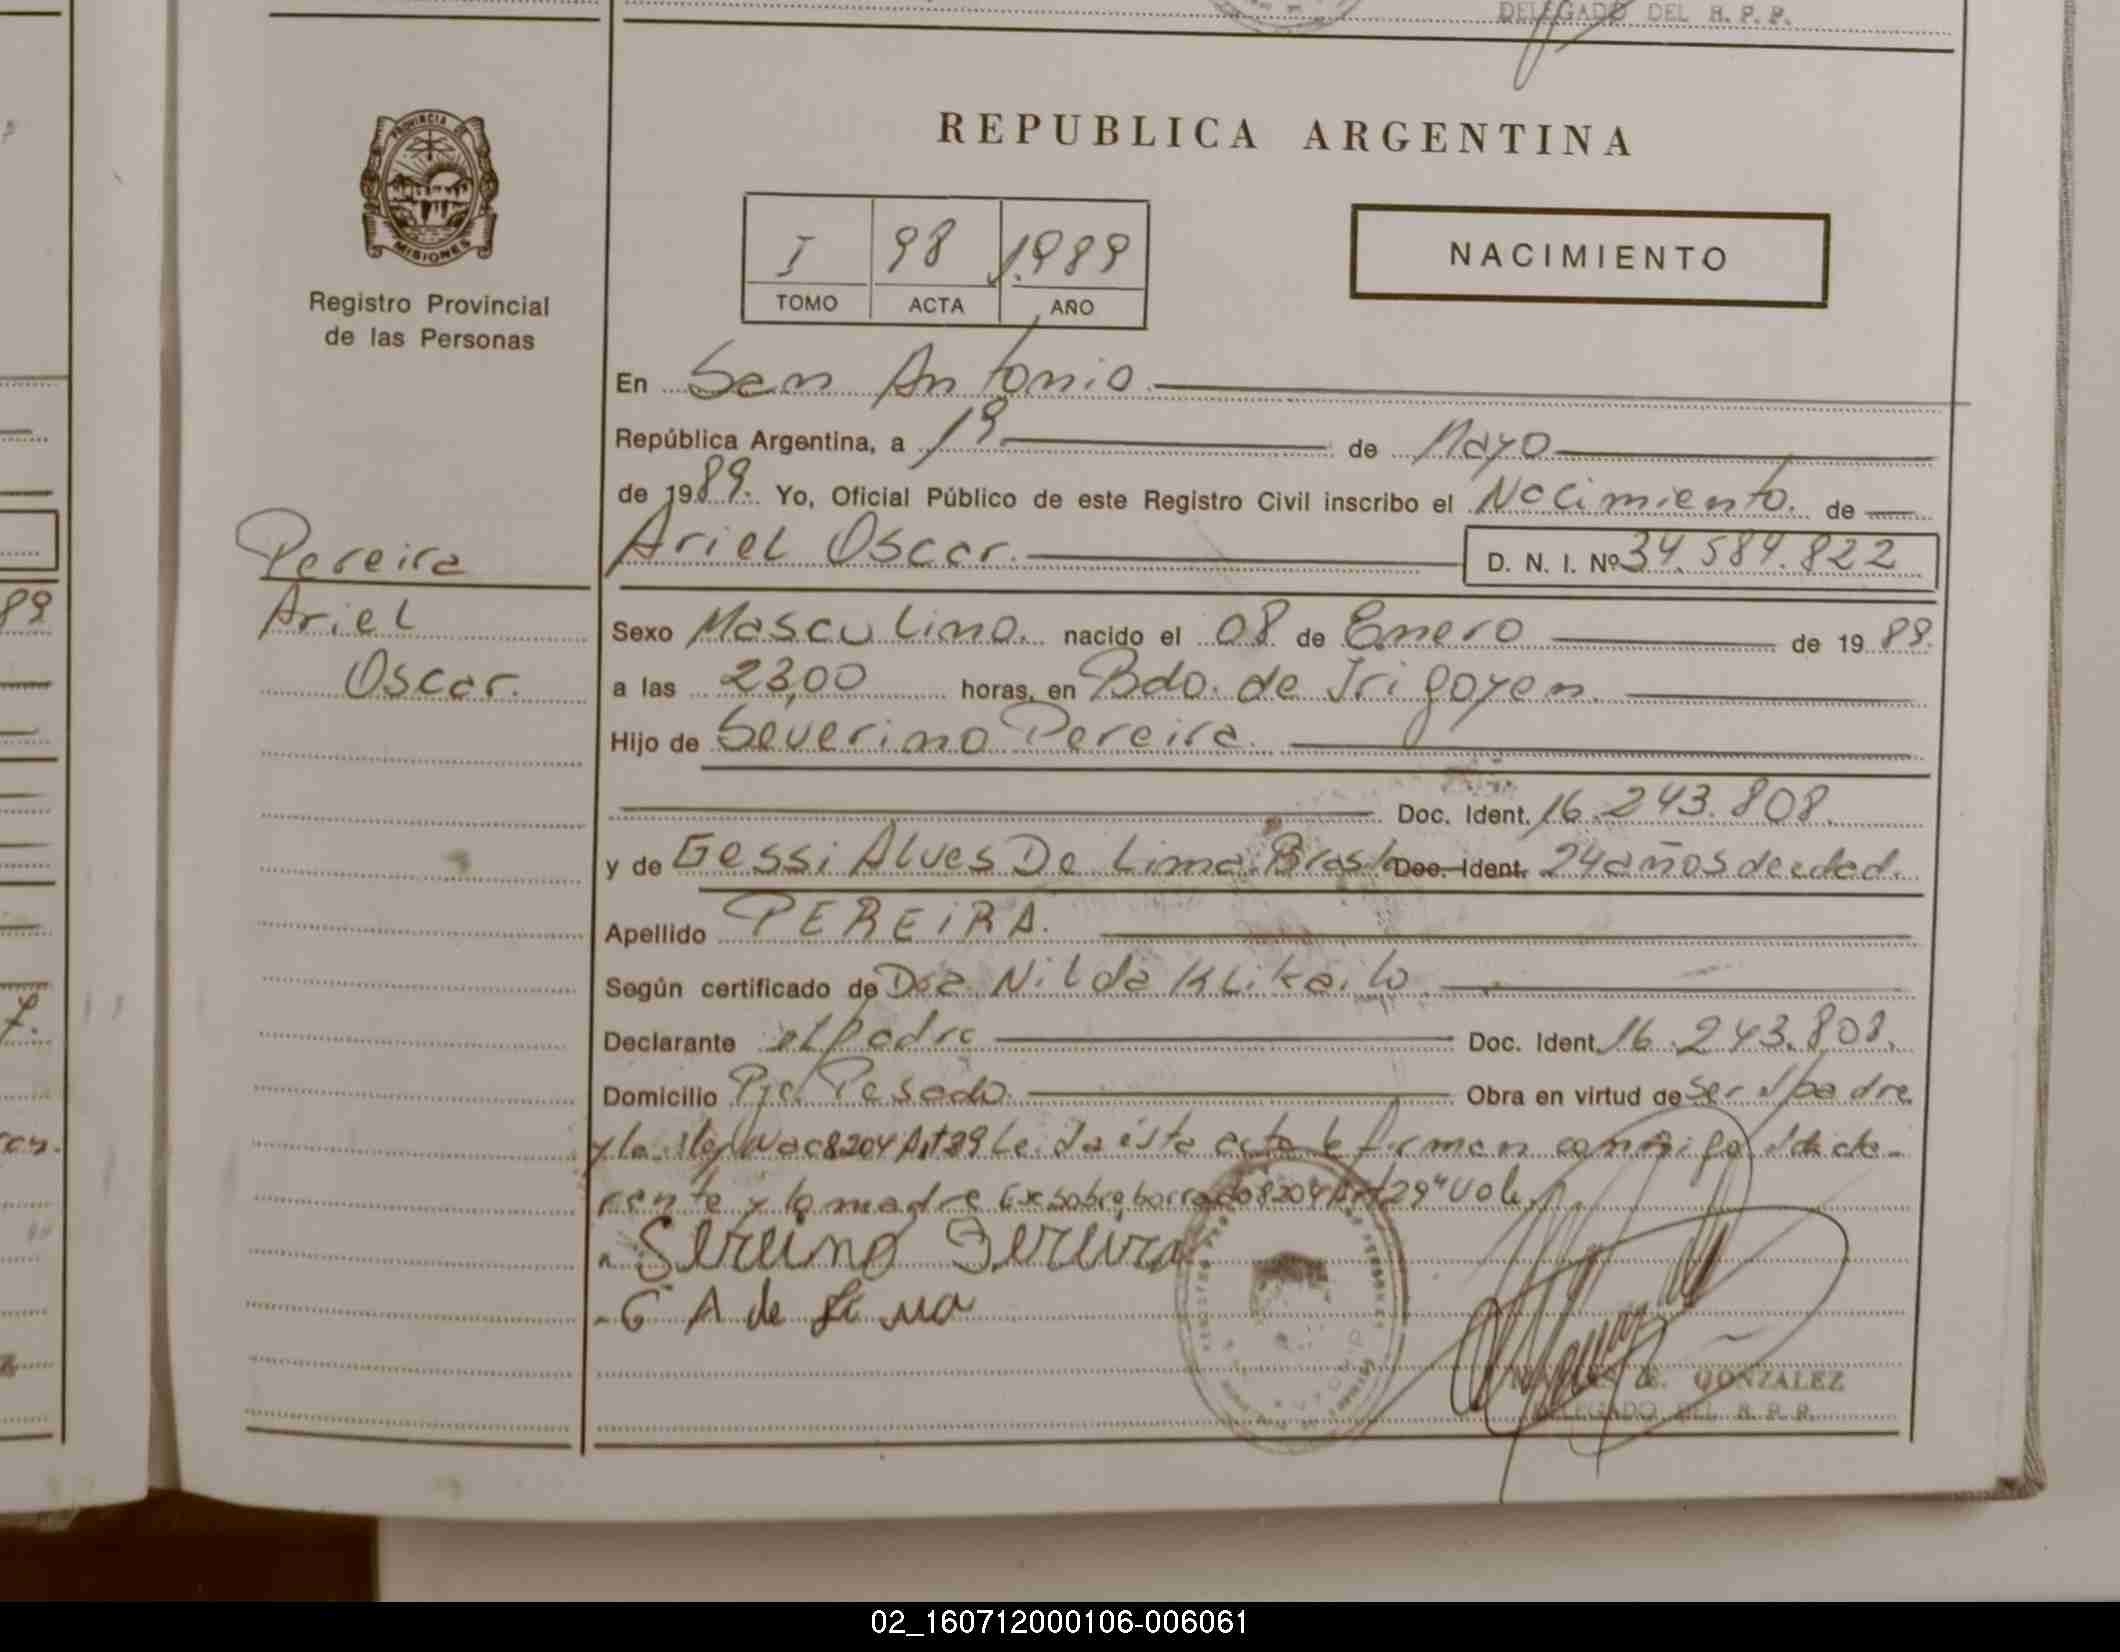 DELEGADO DEL R. P. P.
PROVINCIA DE
MISIONES
Registro Provincial
de las Personas
REPUBLICA ARGENTINA
I 98 1989
TOMO ACTA AÑO
NACIMIENTO
En San Antonio
República Argentina, a 19 de Mayo
de 1989. Yo, Oficial Público de este Registro Civil inscribo el Nacimiento. de
Pereira
Ariel Oscar. D. N. I. Nº 34.584.822
Ariel
Oscar.
Sexo Masculino. nacido el 08 de Enero de 1989.
a las 23,00 horas, en Bdo. de Irigoyen.
Hijo de Severino Pereira.
Doc. Ident. 16.243.808.
y de Gessi Alves De Lima. Doc. Ident. 24 años de edad.
Apellido PEREIRA.
Según certificado de Dra Nilda
Declarante el padre Doc. Ident. 16.243.808.
Domicilio Pje Pesado. Obra en virtud de ser el padre
y la firman conmigo
rente y la madre sobreborrado 8204 Art 29" Vale.
Pereira
G A de Lima
GONZALEZ
DELEGADO DEL R. P. P.
89
7.
02_160712000106-006061